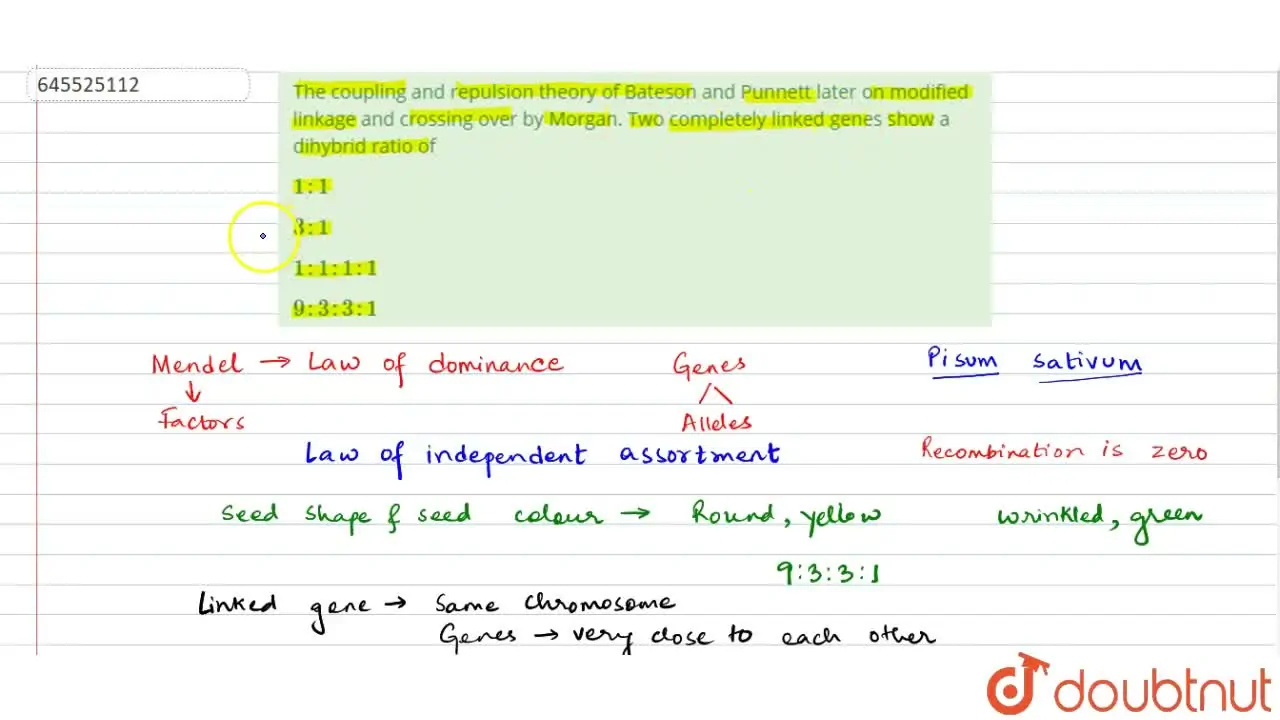 645525112
The coupling and repulsion theory of Bateson and Punnett later on modified
linkage and crossing over by Morgan. Two completely linked genes show a
dihybrid ratio of
1 : 1
3 : 1
1 : 1 : 1 : 1
9 : 3 : 3 : 1
Mendel → Law of dominance Genes Pisum sativum
↓
Factors Alleles
Law of independent assortment Recombination is zero
Seed shape & seed colour → Round, yellow wrinkled, green
9:3:3:1
Linked gene → Same chromosome
Genes → very close to each other
doubtnut